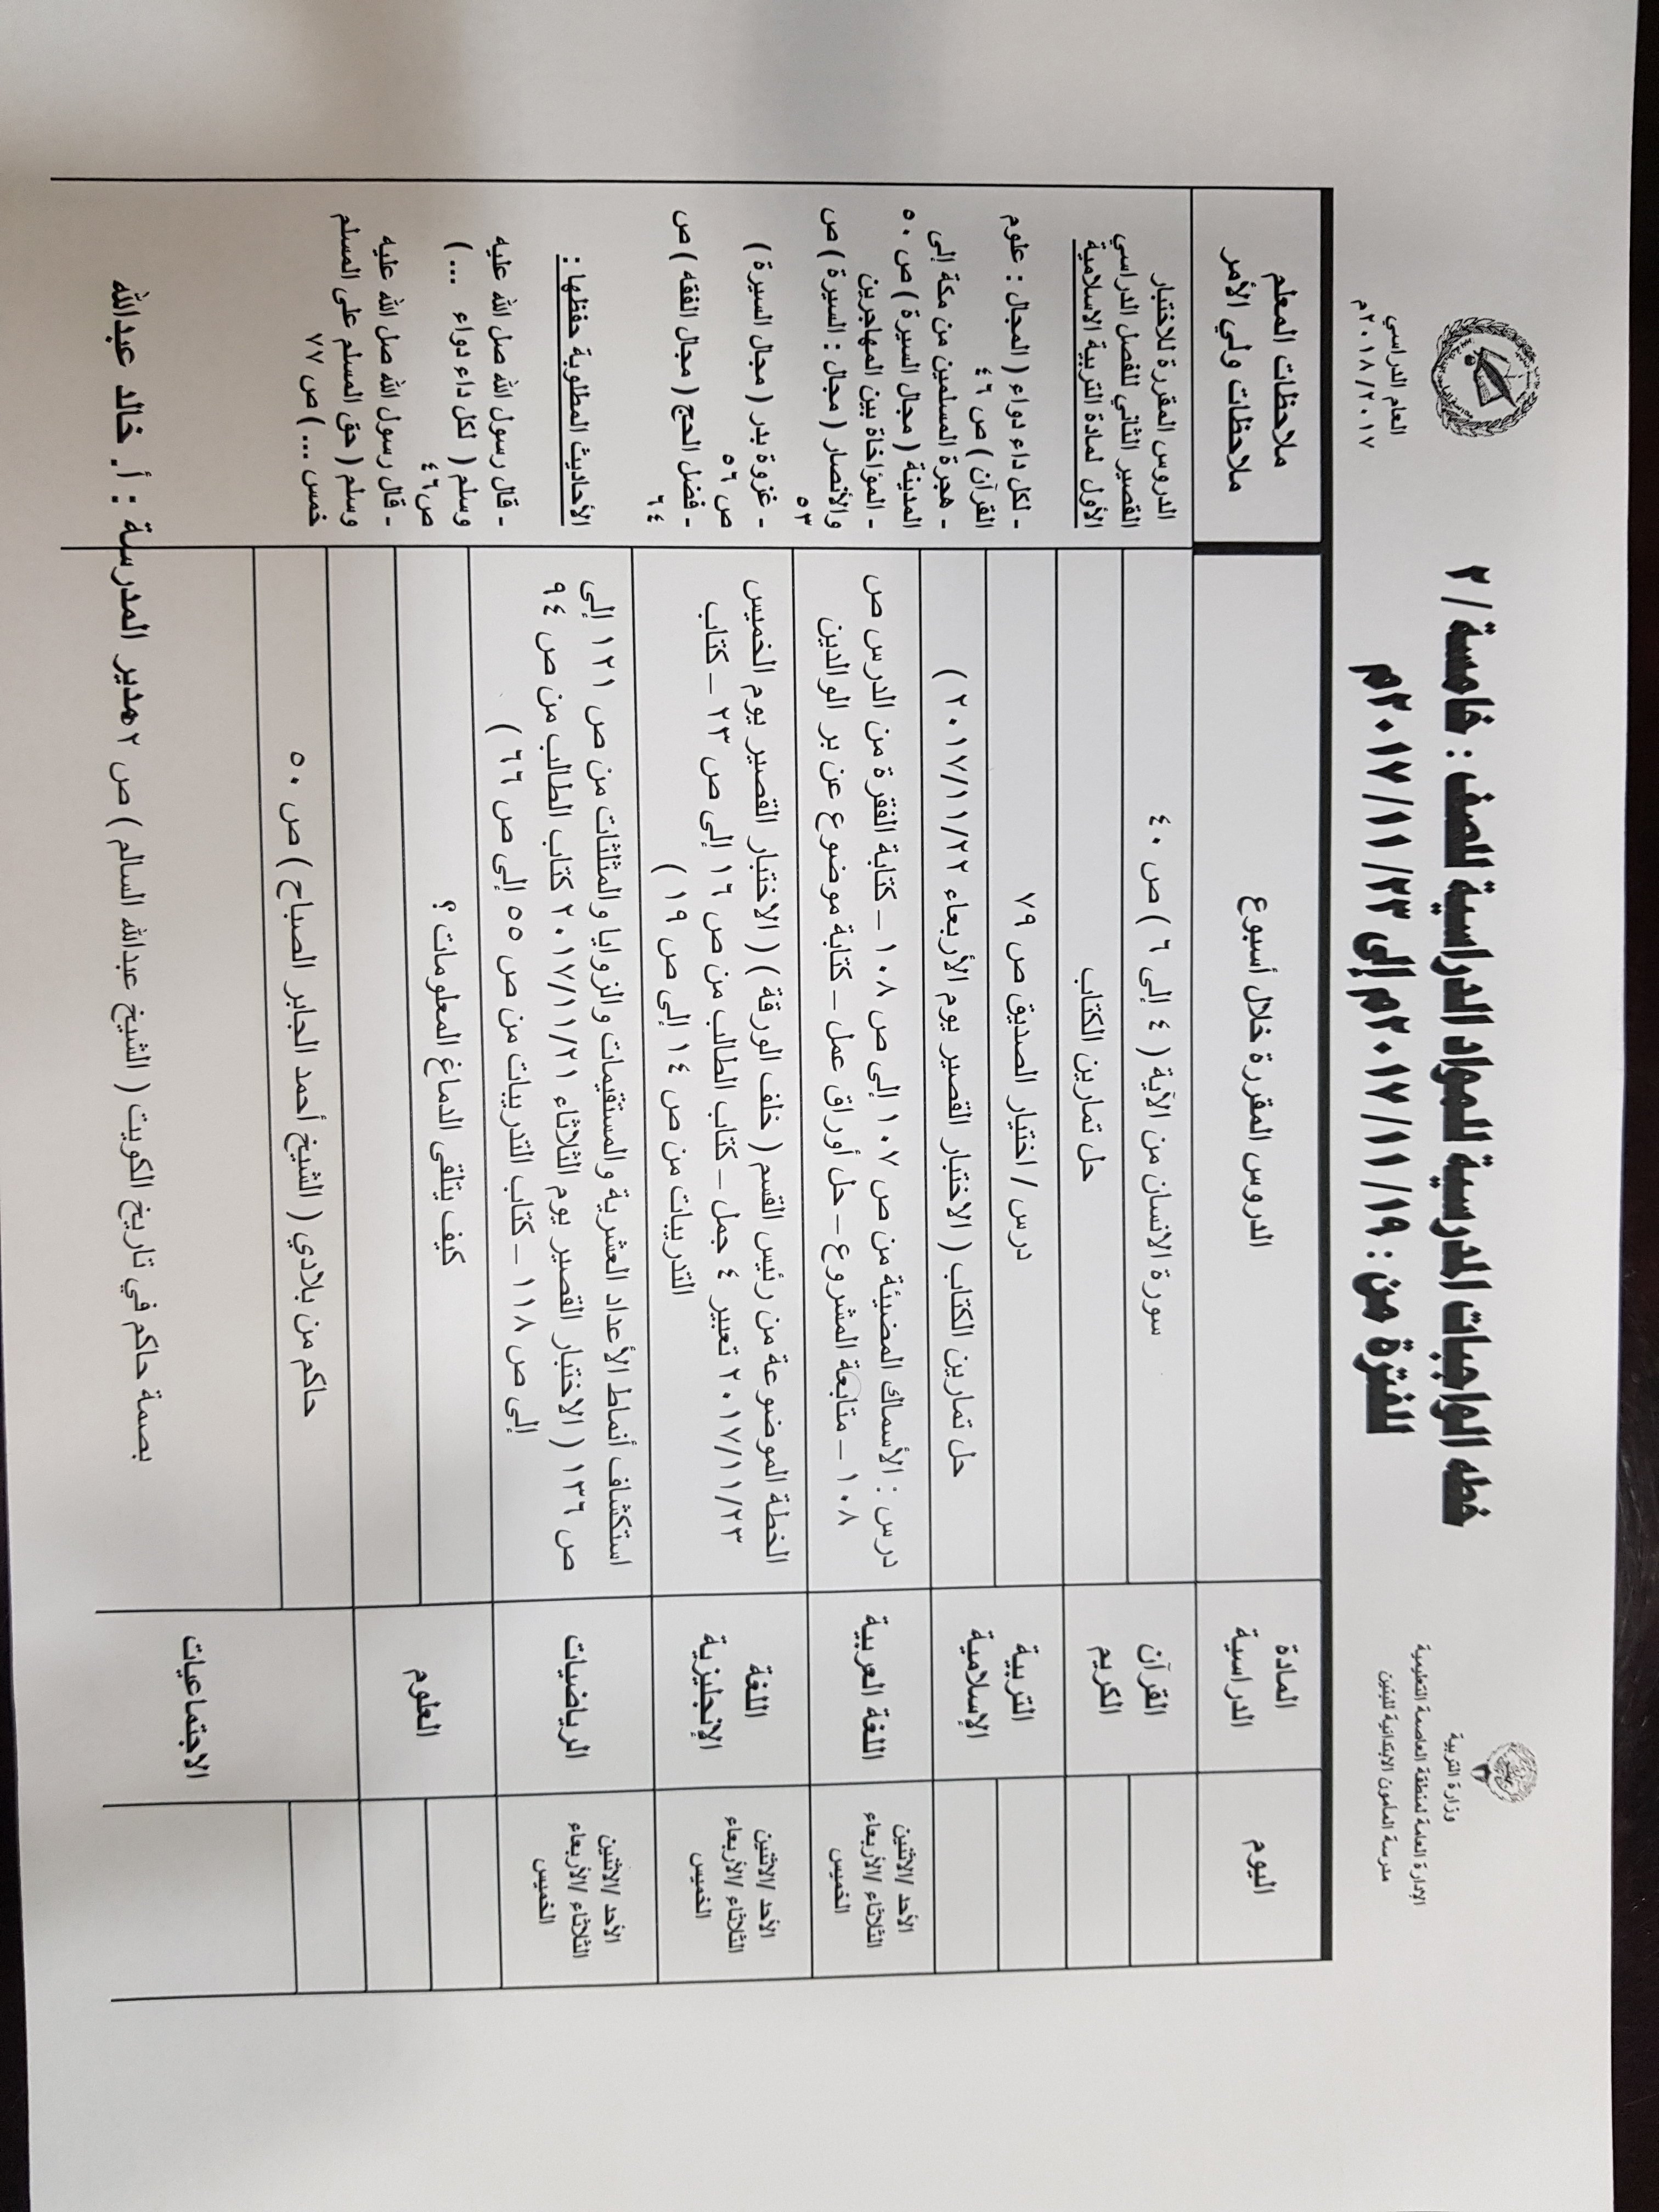 وزارة التربية
الإدارة العامة لمنطقة العاصمة التعليمية
مدرسة المأمون الابتدائية للبنين
خطه الواجبات المدرسية للمواد الدراسية للصف : خامسة / ٢
للفترة من : ١٩ /١١ /٢٠١٧م إلى ٢٣ /١١ /٢٠١٧م
العام الدراسي
٢٠١٨/٢٠١٧م
اليوم
المادة
الدراسية
الدروس المقررة خلال أسبوع
ملاحظات المعلم
ملاحظات ولي الأمر
القرآن
الكريم
سورة الانسان من الآية ( ٤ إلى ٦ ) ص ٤٠
حل تمارين الكتاب
التربية
الإسلامية
درس / اختيار الصديق ص ٧٩
حل تمارين الكتاب ( الاختبار القصير يوم الأربعاء ٢٠١٧/١١/٢٢ )
الأحد /الاثنين
الثلاثاء /الأربعاء
الخميس
اللغة العربية
درس : الأسماك المضيئة من ص ١٠٧ إلى ص ١٠٨ – كتابة الفقرة من الدرس ص
١٠٨ – متابعة المشروع – حل أوراق عمل – كتابة موضوع عن بر الوالدين
الأحد /الاثنين
الثلاثاء /الأربعاء
الخميس
اللغة
الإنجليزية
الخطة الموضوعة من رئيس القسم ( خلف الورقة ) ( الاختبار القصير يوم الخميس
٢٠١٧/١١/٢٣ تعبير ٤ جمل – كتاب الطالب من ص ١٦ إلى ص ٢٣ – كتاب
التدريبات من ص ١٤ إلى ص ١٩ )
الأحد /الاثنين
الثلاثاء /الأربعاء
الخميس
الرياضيات
استكشاف أنماط الأعداد العشرية والمستقيمات والزوايا والمثلثات من ص ١٢١ إلى
ص ١٣٦ ( الاختبار القصير يوم الثلاثاء ٢٠١٧/١١/٢١ كتاب الطالب من ص ٩٤
إلى ص ١١٨ – كتاب التدريبات من ص ٥٥ إلى ص ٦٦ )
العلوم
كيف يتلقى الدماغ المعلومات ؟
الاجتماعيات
حاكم من بلادي ( الشيخ أحمد الجابر الصباح ) ص ٥٠
بصمة حاكم في تاريخ الكويت ( الشيخ عبدالله السالم ) ص ٢
الدروس المقررة للاختبار
القصير الثاني للفصل الدراسي
الأول لمادة التربية الاسلامية
- لكل داء دواء ( المجال : علوم
القرآن ) ص ٤٦
- هجرة المسلمين من مكة إلى
المدينة ( مجال السيرة ) ص ٥٠
- المؤاخاة بين المهاجرين
والأنصار ( مجال : السيرة ) ص
٥٣
- غزوة بدر ( مجال السيرة )
ص ٥٦
- فضل الحج ( مجال الفقه ) ص
٦٤
الأحاديث المطلوبة حفظها :
- قال رسول الله صل الله عليه
وسلم ( لكل داء دواء ... )
ص ٤٦
- قال رسول الله صل الله عليه
وسلم ( حق المسلم على المسلم
خمس ... ) ص ٧٧
مدير المدرسة : أ. خالد عبدالله